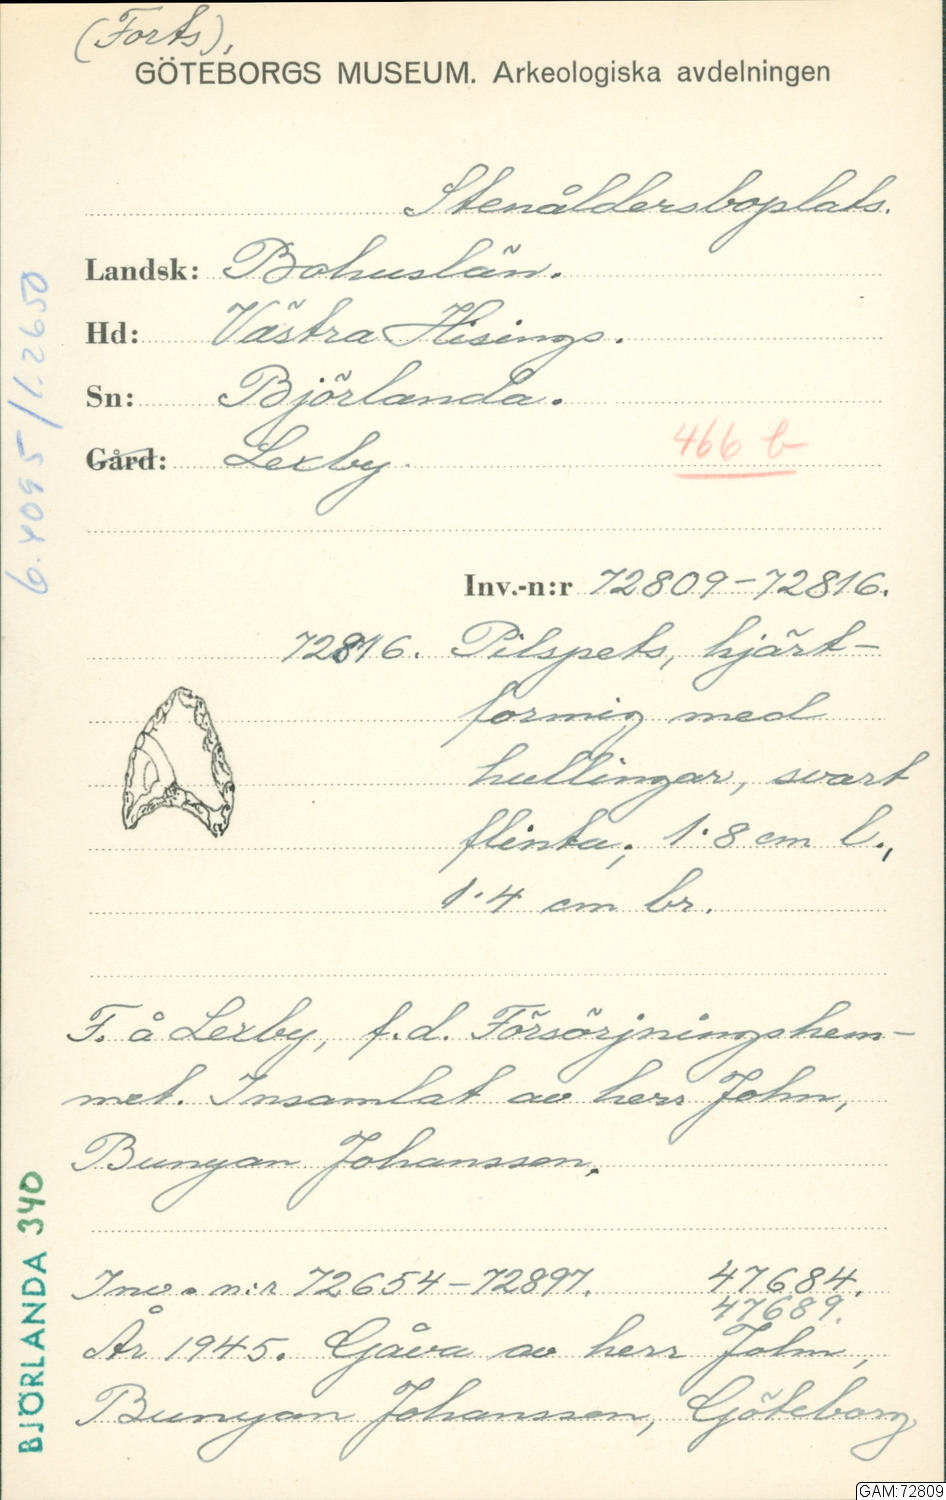 (Forts),
GÖTEBORGS MUSEUM. Arkeologiska avdelningen
Stenåldersboplats.
Landsk: Bohuslän.
Hd: Västra Hisings.
Sn: Björlanda.
Gård: Lexby.
466 b
Inv.-n:r 72809-72816.
72816. Pilspets, hjärt-
formig med
hullingar, svart
flinta; 1.8 cm l.,
1.4 cm br.
F. å Lexby, f.d. Försörjningshem-
met. Insamlat av herr John,
Bunyan Johansson.
Inv. n:r 72654-72897. 47684.
47689.
År 1945. Gåva av herr John,
Bunyan Johansson, Göteborg
6.4095/1.2650
BJÖRLANDA 340
GAM:72809